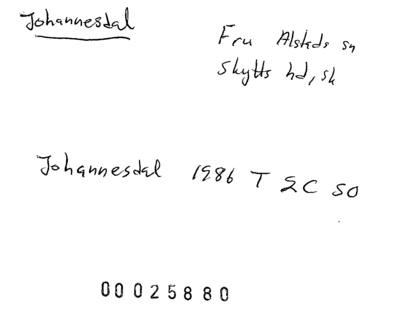 Johannesdal
Fru Alstads sn
Skytts hd, sk
Johannesdal 1986 T 2C SO
00025880